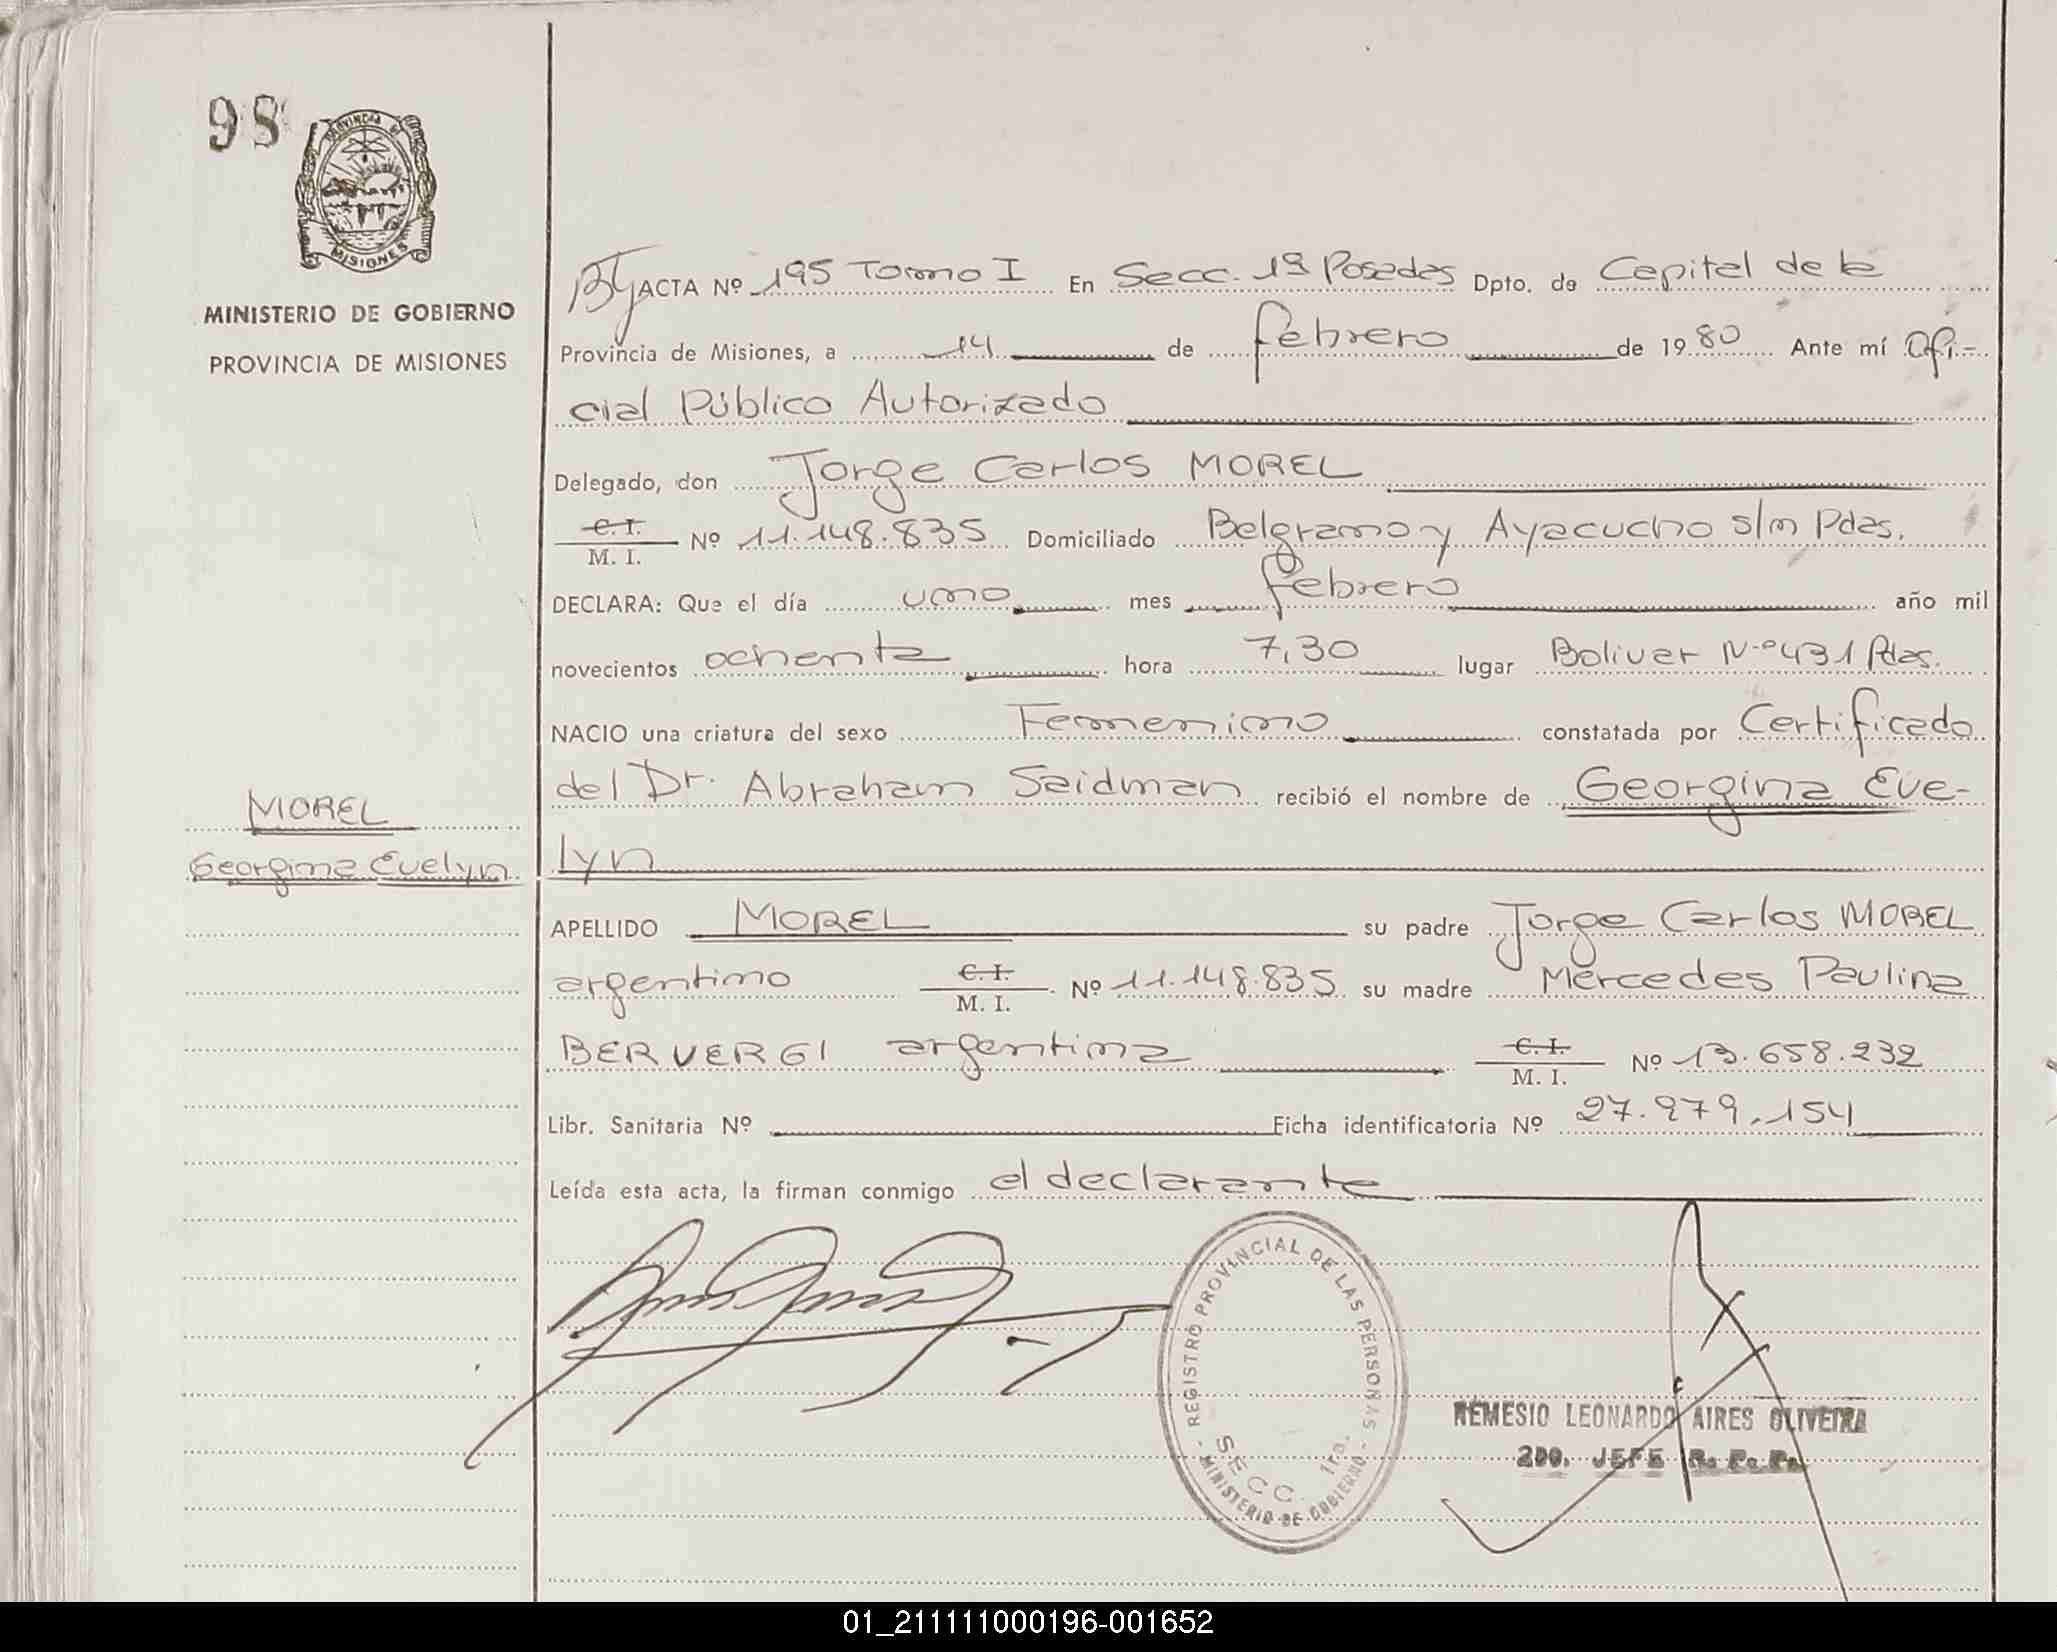 98
PROVINCIA DE
MISIONES
MINISTERIO DE GOBIERNO
PROVINCIA DE MISIONES
ACTA Nº 195 Tomo I En Secc. 1ª Posadas Dpto. de Capital de la
Provincia de Misiones, a 14 de febrero de 1980 Ante mí Ofi-
cial Público Autorizado
Delegado, don Jorge Carlos MOREL
C. I.
M. I. Nº 11.148.835 Domiciliado Belgrano y Ayacucho s/n Pdas.
DECLARA: Que el día uno mes febrero año mil
novecientos ochenta hora 7,30 lugar Bolivar Nº 431 Pdas.
NACIO una criatura del sexo Femenino constatada por Certificado
del Dr. Abraham Saidman recibió el nombre de Georgina Eve-
lyn
MOREL
Georgina Evelyn
APELLIDO MOREL su padre Jorge Carlos MOREL
argentino C. I. M. I. Nº 11.148.835 su madre Mercedes Paulina
BERVERGI argentina C. I. M. I. Nº 13.658.232
Libr. Sanitaria Nº Ficha identificatoria Nº 27.979.154
Leída esta acta, la firman conmigo el declarante
REGISTRO PROVINCIAL DE LAS PERSONAS
SECC. 1ra.
MINISTERIO DE GOBIERNO
NEMESIO LEONARDO AIRES OLIVEIRA
2DO. JEFE R. P. P.
01_211111000196-001652